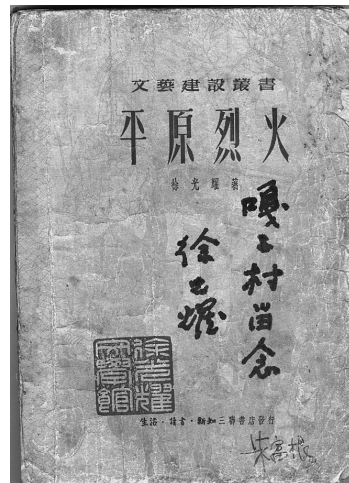 文藝建設叢書
平原烈火
徐光耀著
嘎子村留念
徐光耀
徐光耀
文學館
生活·讀書·新知三聯書店發行